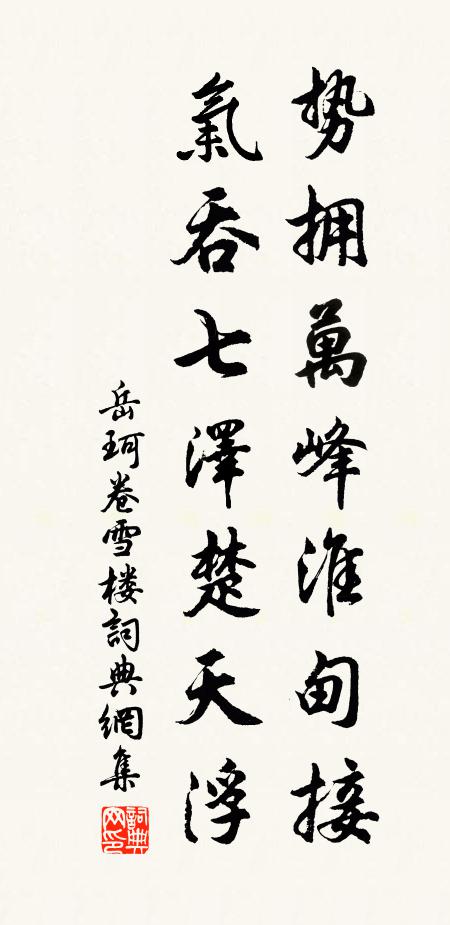 势拥萬峰淮甸接
氣吞七澤楚天浮
岳珂卷雪楼詞典網集
詞典网印